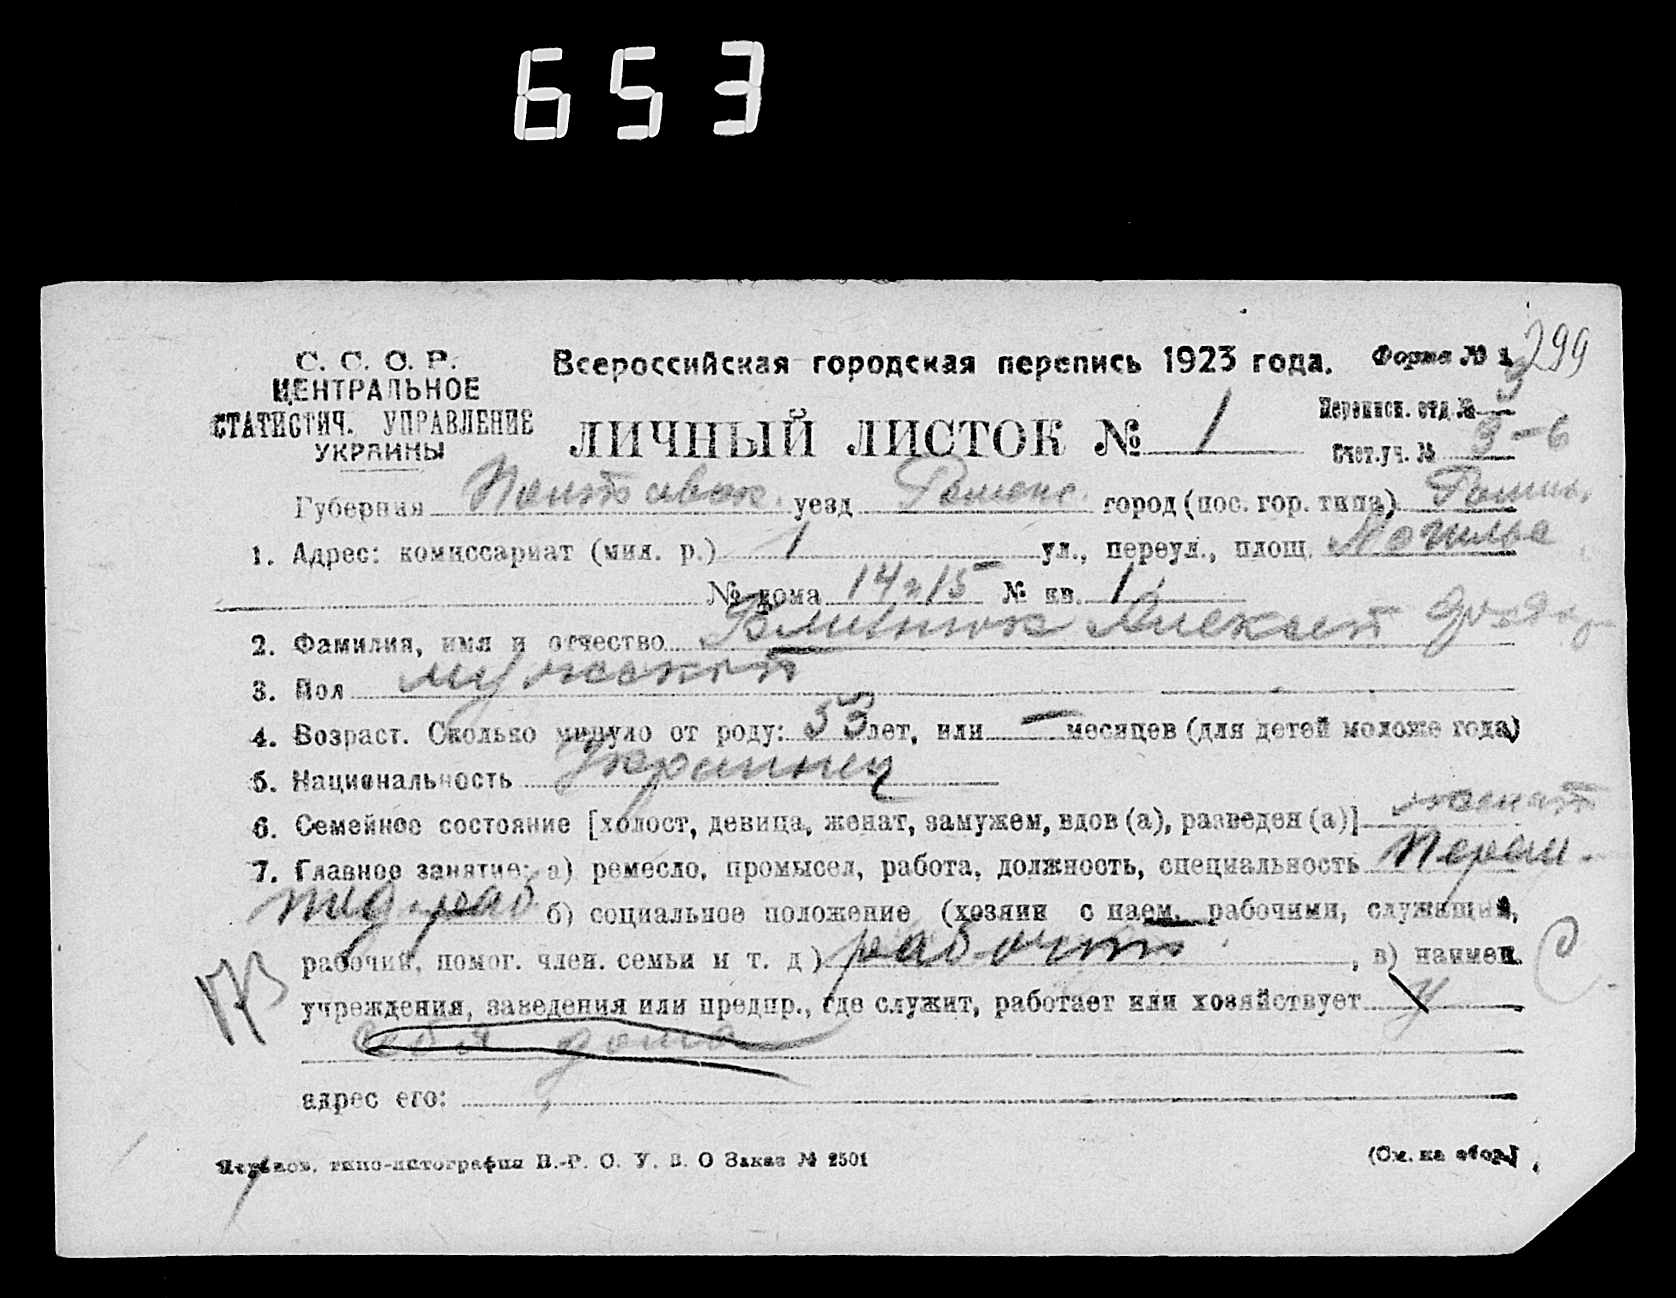 653
299
С. С. О. Р.
ЦЕНТРАЛЬНОЕ
СТАТИСТИЧ. УПРАВЛЕНИЕ
УКРАИНЫ
Всероссийская городская перепись 1923 года.
Форма № 1
ЛИЧНЫЙ ЛИСТОК № 1
Переписн. отд. № 3
Счет. уч. № 3-6
Губерния Полтавск. уезд Роменс. город (пос. гор. типа) Ромны
1. Адрес: комиссариат (мил. р.) 1 ул., переул., площ.
№ дома 14 и 15 № кв. 1
2. Фамилия, имя и отчество Алексей
3. Пол мужской
4. Возраст. Сколько минуло от роду: 53 лет, или — месяцев (для детей моложе года)
5. Национальность Украинец
6. Семейное состояние [холост, девица, женат, замужем, вдов (а), разведен (а)] женат
7. Главное занятие: а) ремесло, промысел, работа, должность, специальность
раб б) социальное положение (хозяин с наем. рабочими, служащий,
рабочий, помог. член. семьи и т. д.) рабочий, в) наимен.
учреждения, заведения или предпр., где служит, работает или хозяйствует у
себя дома
адрес его:
173
типо-литография Н.-Р. О. У. В. О Заказ № 2501
(См. на обор.)